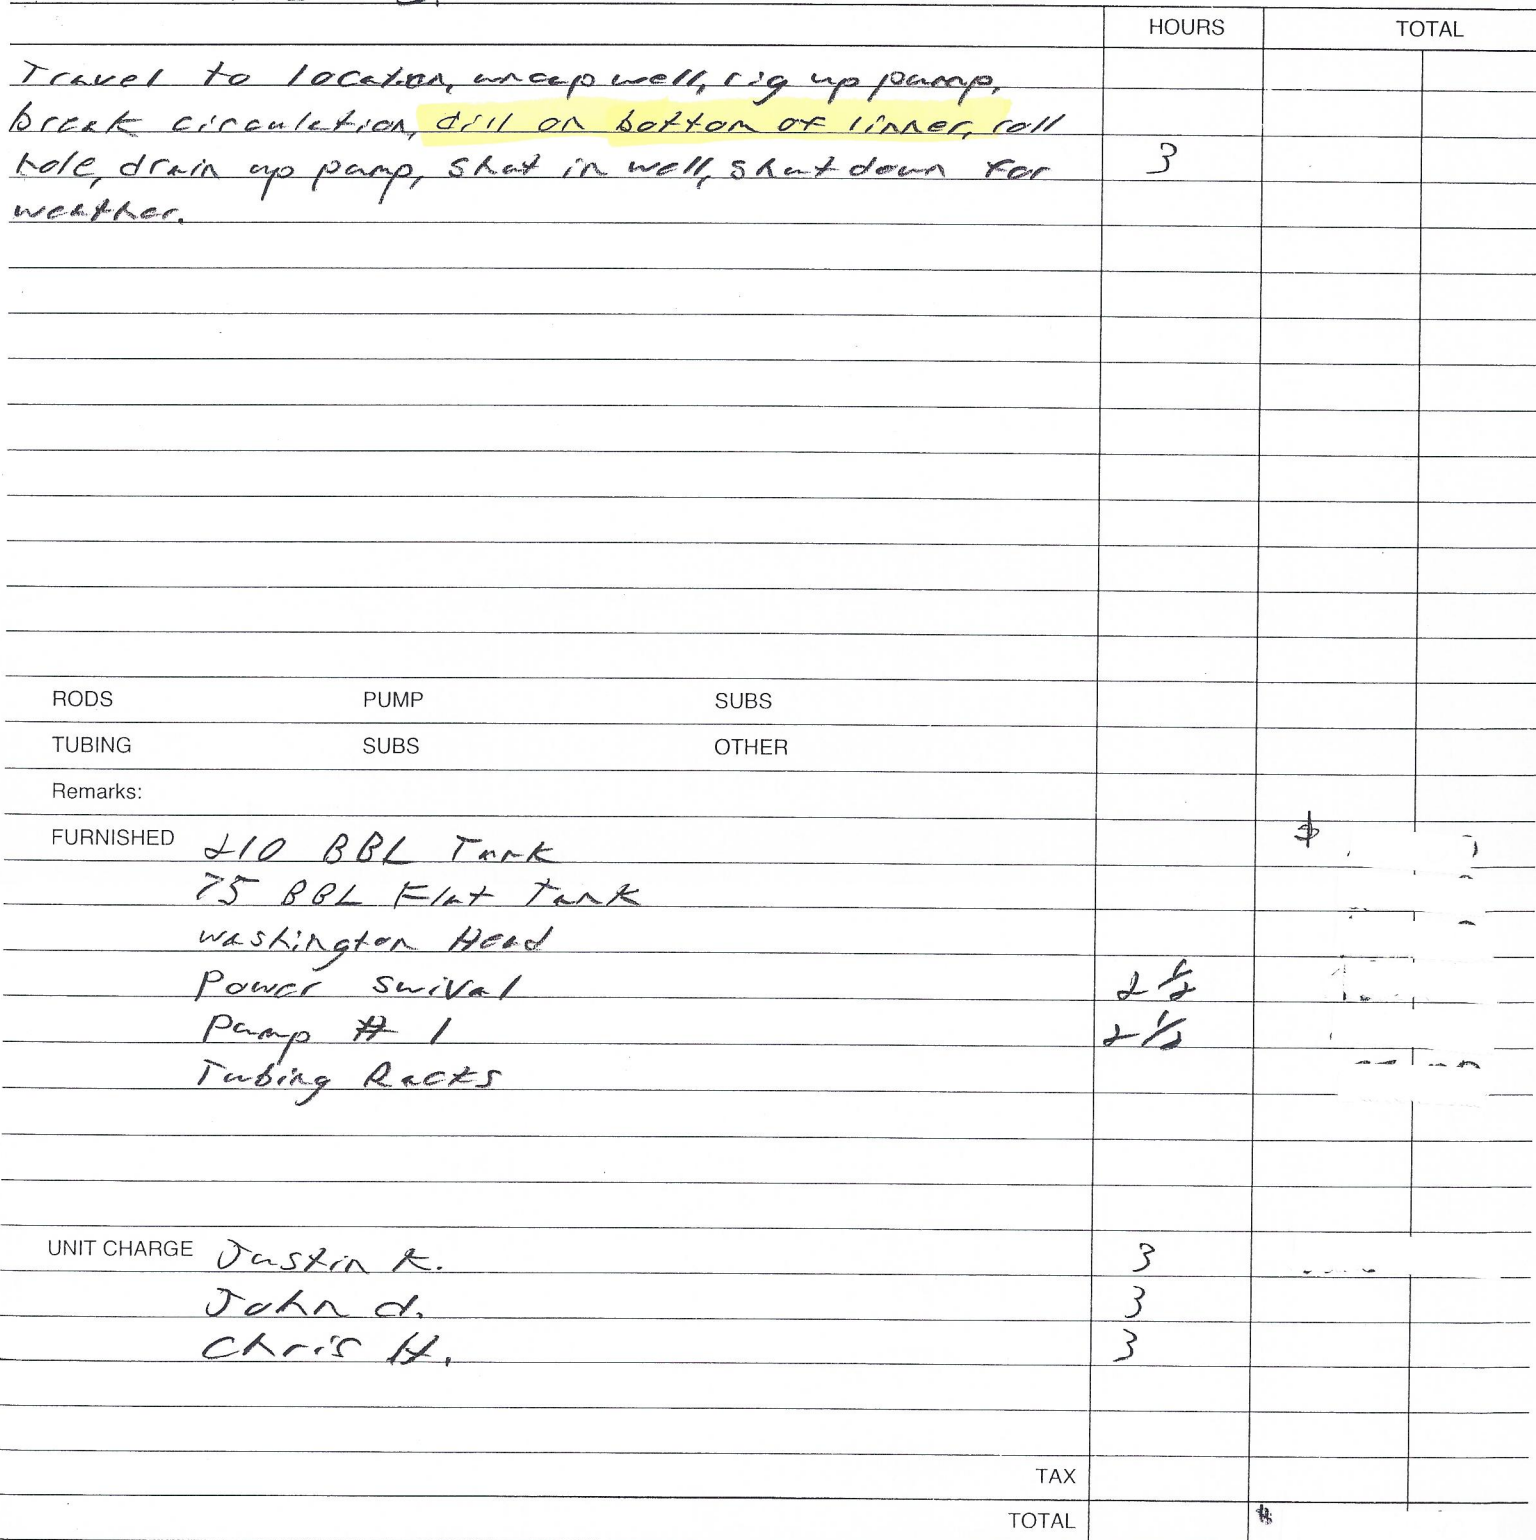 HOURS TOTAL
Travel to location, uncap well, rig up pump,
break circulation, drill on bottom of linner, roll
hole, drain up pump, shut in well, shut down for 3
weather.
RODS PUMP SUBS
TUBING SUBS OTHER
Remarks:
FURNISHED 210 BBL Tank $
75 BBL Flat Tank
Washington Head
Power Swival 2 1/2
Pump # 1 2 1/2
Tubing Racks
UNIT CHARGE Justin K. 3
John d. 3
Chris H. 3
TAX
TOTAL $